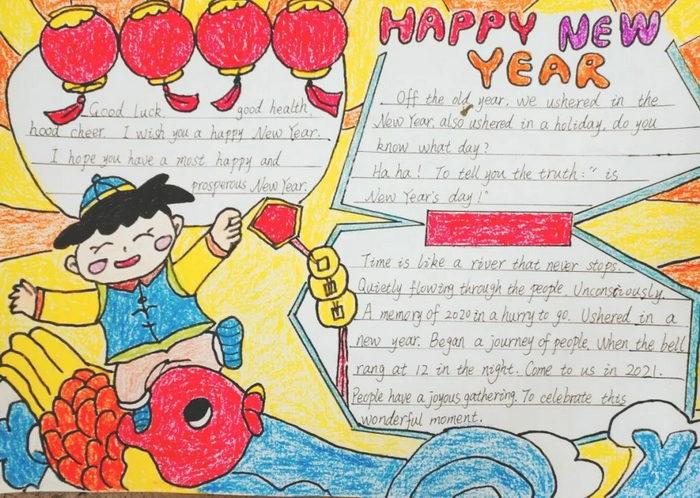 HAPPY NEW
YEAR
Good luck. good health.
hood cheer. I wish you a happy New Year.
I hope you have a most happy and
prosperous New Year.
Off the old year, we ushered in the
New Year, also ushered in a holiday, do you
know what day?
Ha ha! To tell you the truth: " is
New Year's day!"
Time is like a river that never stops.
Quietly flowing through the people Unconsciously.
A memory of 2020 in a hurry to go. Ushered in a
new year. Began a journey of people. When the bell
rang at 12 in the night. Come to us in 2021.
People have a joyous gathering. To celebrate this
wonderful moment.